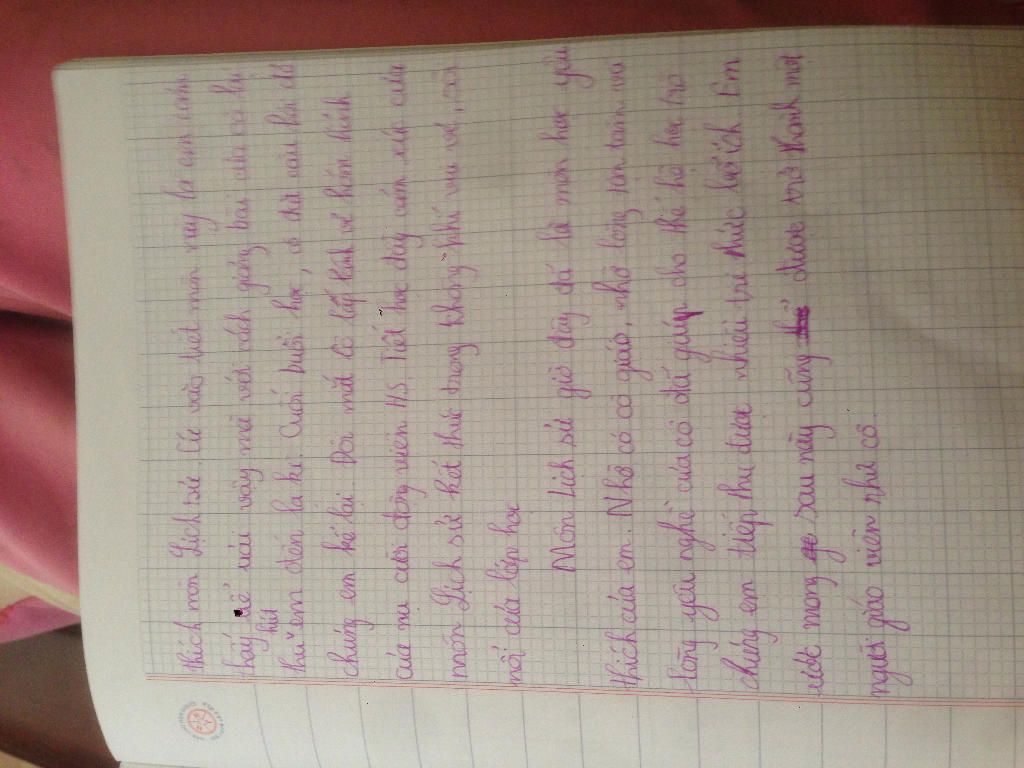 thích môn Lịch sử. Cứ vào tiết môn này là em cảm
thấy dễ xíu vậy mà với cách giảng bài của cô lại
thu hút em đến lạ kì. Cuối buổi học, có thể câu hỏi đó
chúng em kể lại. Đôi mắt cô lấp lánh vẻ hân hạnh
của nụ cười động viên HS. Tiết học đầy cảm xúc của
môn Lịch sử kết thúc trong không khí vui vẻ, sôi
nổi của lớp học
Môn Lịch sử giờ đây đã là môn học yêu
thích của em. Nhờ có cô giáo, nhờ lòng tận tâm và
lòng yêu nghề của cô đã giúp cho thế hệ học trò
chúng em tiếp thu được nhiều tri thức bổ ích Em
ước mong sau này cũng được trở thành một
người giáo viên như cô.